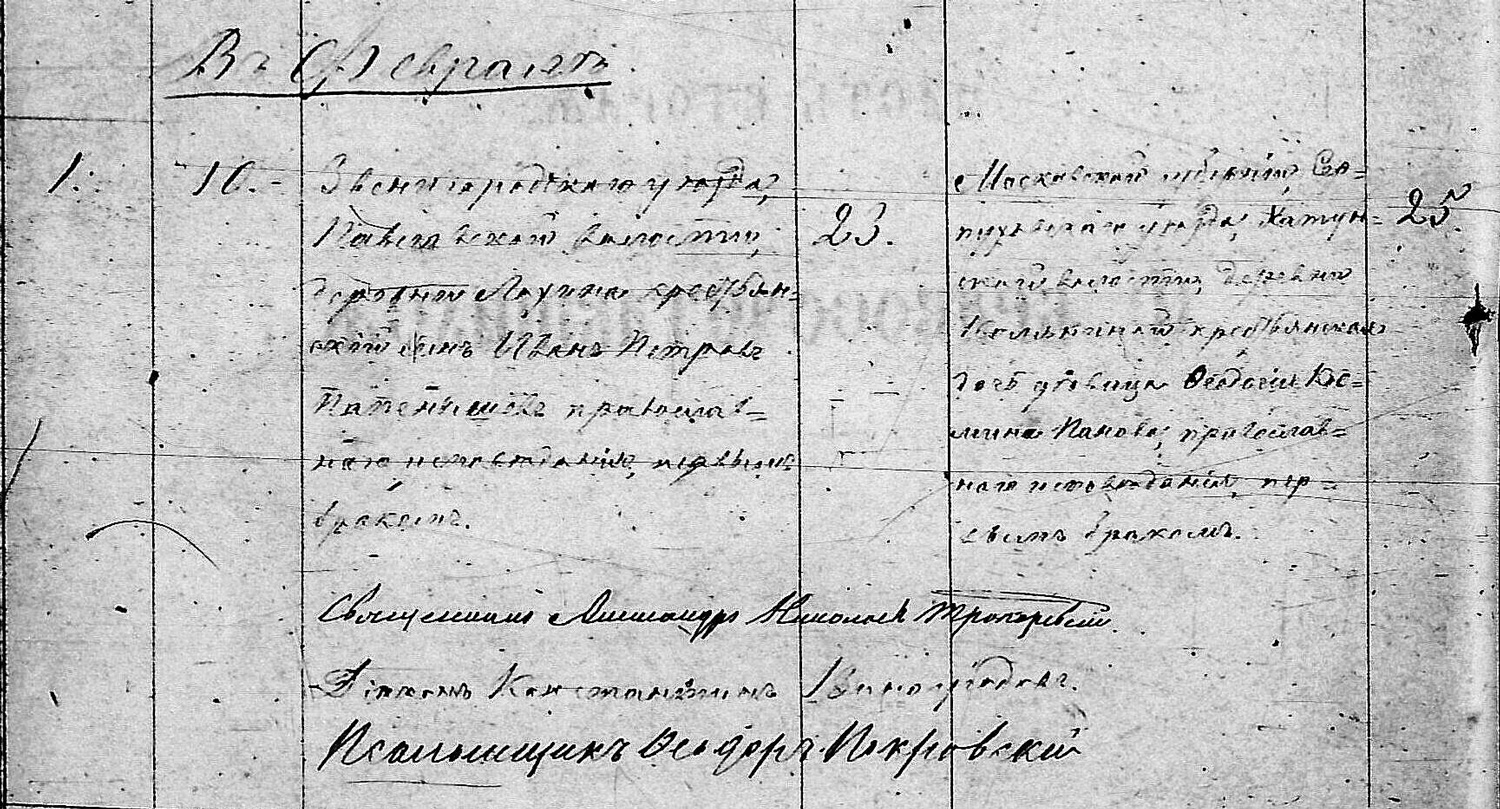 Въ Февралѣ
1. 10. Звенигородскаго уѣзда,
Павловской волости,
деревни Лохина крестьян=
скій сынъ Иванъ Петровъ
православ=
наго исповѣданія, первымъ
бракомъ.
23.
Московской губерніи, Сер=
пуховскаго уѣзда, Хатун=
ской волости, деревни
крестьянская
дочь дѣвица Ѳеодосія Кос=
мина Панова, православ=
наго исповѣданія, пер=
вымъ бракомъ.
25.
Священникъ Александръ Николаевъ
Діаконъ Константинъ Виноградовъ.
Псаломщикъ Ѳеодоръ Покровскій